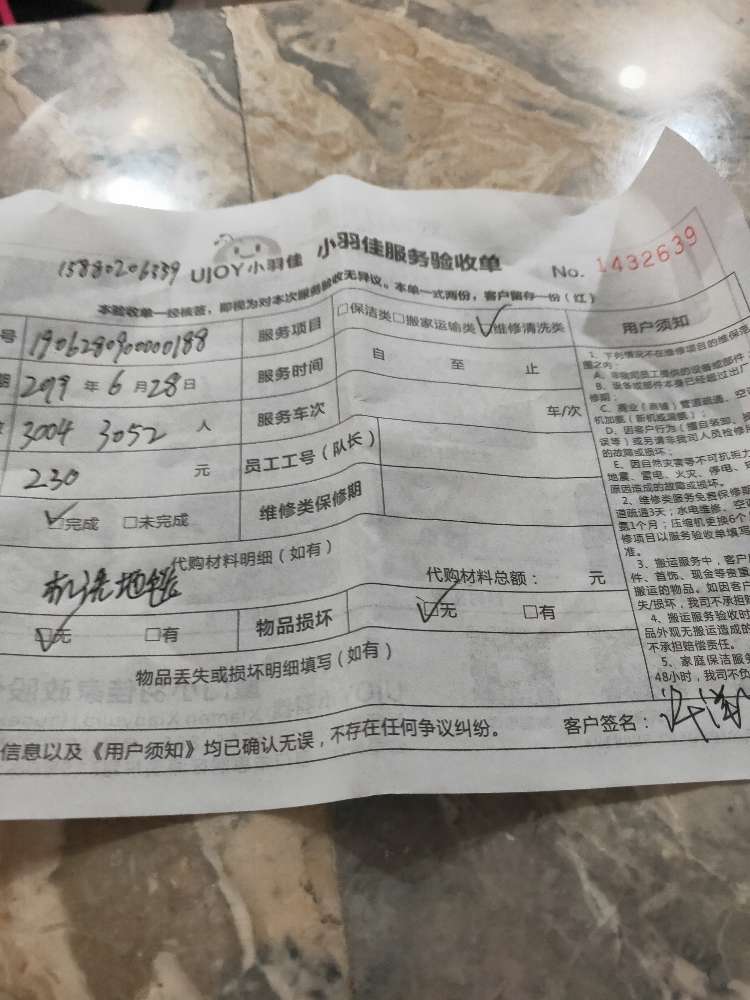 13880206339 UJOY小羽佳 小羽佳服务验收单 No. 1432639
本验收单一经核签，即视为对本次服务验收无异议。本单一式两份，客户留存一份（红）
号 190628090000188 服务项目 □保洁类□搬家运输类☑维修清洗类 用户须知
期 2019 年 6 月 28 日 服务时间 自 至 止
3004 3052 人 服务车次 车/次
230 元 员工工号（队长）
☑完成 □未完成 维修类保修期
代购材料明细（如有）
机洗地毯 代购材料总额： 元
☑无 □有 物品损坏 ☑无 □有
物品丢失或损坏明细填写（如有）
信息以及《用户须知》均已确认无误，不存在任何争议纠纷。 客户签名：
1、下列情况不在维修项目的维保范
围之内：
A、非我司员工提供的设备或部件
B、设备或部件本身已经超过出厂
修期；
C、商业（商铺）管道疏通、空
机加氨（新机或漏氨）；
D、因客户行为（擅自装卸、
误等）或另请非我司人员检修
的故障或损坏；
E、因自然灾害等不可抗拒力
地震、雷电、火灾、停电、
原因造成的故障或损坏。
2、维修类服务免费保修期
道疏通3天；水电维修、空
氨1个月；压缩机更换6个
修项目以服务验收单填写
准。
3、搬运服务中，客户
件、首饰、现金等贵重
搬运的物品。如因客户
失/损坏，我司不承担赔
4、搬运服务验收时
品外观无搬运造成的
不承担赔偿责任。
5、家庭保洁服务
48小时，我司不负